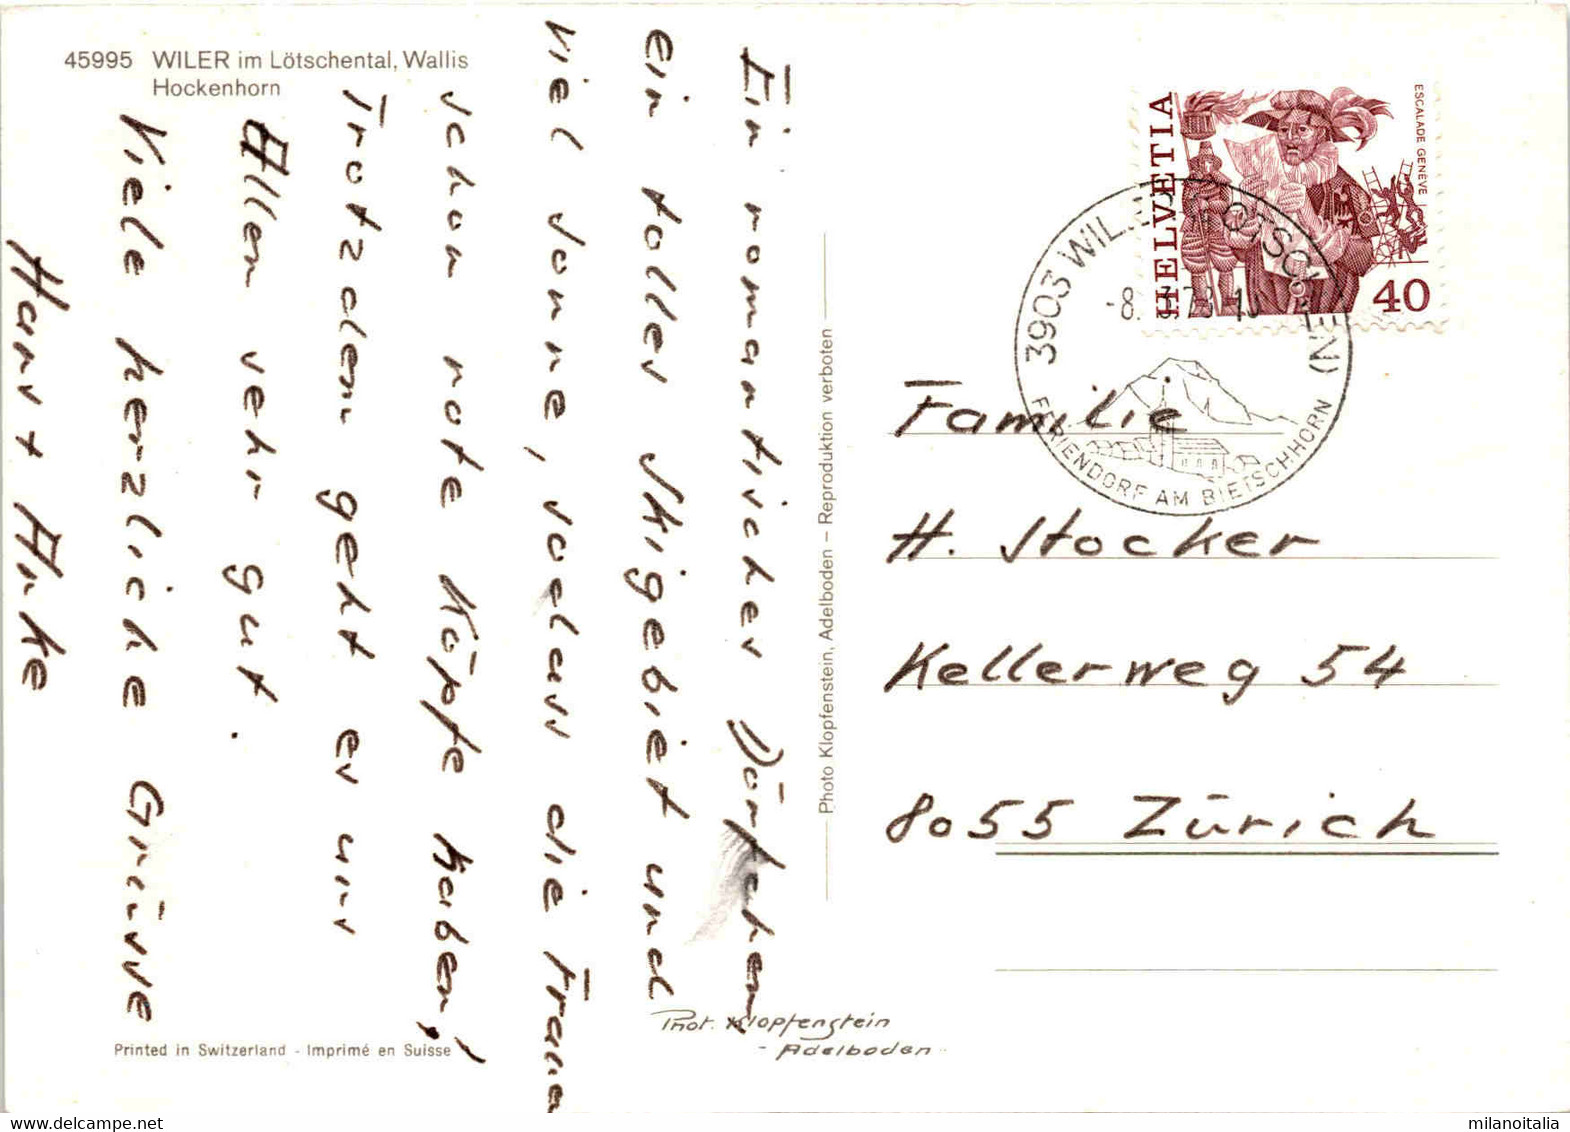 45995 WILER im Lötschental, Wallis
Hockenhorn
Ein romantisches Dörfchen
ein tolles Skigebiet und
viel Sonne, sodass die Frauen
schon rote Köpfe haben!
Trotzdem geht es uns
Allen sehr gut.
Viele herzliche Grüsse
Hans + Anke
Printed in Switzerland - Imprimé en Suisse
Photo Klopfenstein, Adelboden – Reproduktion verboten
Phot. Klopfenstein
- Adelboden -
HELVETIA
ESCALADE GENÈVE
40
3903 WILER (LÖTSCHEN)
FERIENDORF AM BIETSCHHORN
Familie
H. Stocker
Kellerweg 54
8055 Zürich
milanoitalia